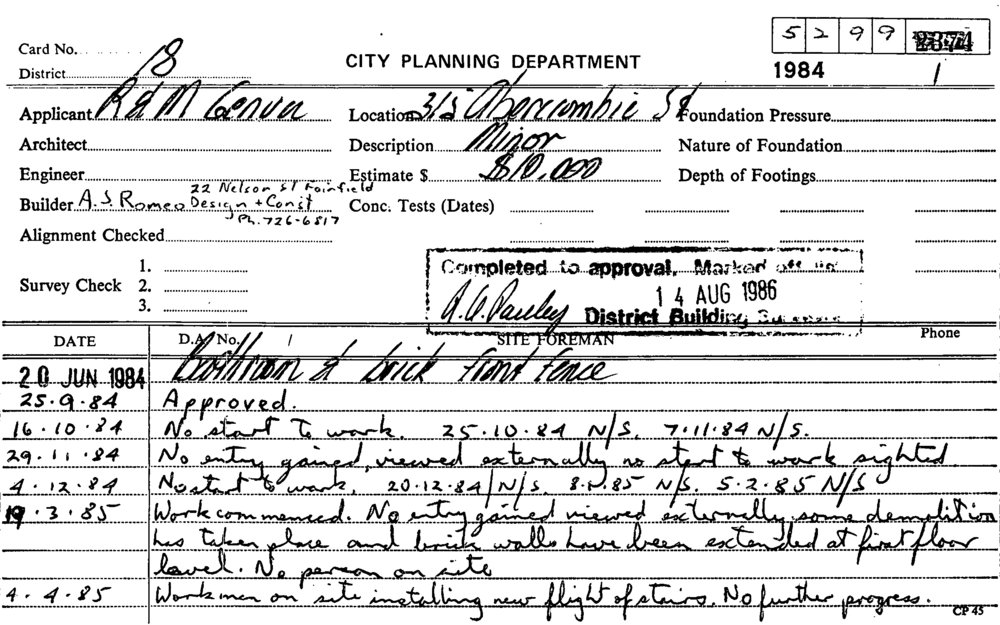 5 2 9 9
Card No.
18
District
CITY PLANNING DEPARTMENT
1984 1
Applicant R & M Location 315 Abercrombie St Foundation Pressure
Architect Description Minor Nature of Foundation
Engineer Estimate $ $10,000 Depth of Footings
22 Nelson St Fairfield
Builder A.S. Romeo Design + Const Conc. Tests (Dates)
Ph. 726-6817
Alignment Checked
1.
Survey Check 2.
3.
Completed to approval. Marked off
14 AUG 1986
District Building
DATE D.A. No. SITE FOREMAN Phone
20 JUN 1984 Bathroom & brick front fence
25.9.84 Approved.
16.10.84 No start to work. 25.10.84 N/S. 7.11.84 N/S.
29.11.84 No entry gained, viewed externally no start to work sighted.
4.12.84 No start to work. 20.12.84 N/S. 8.1.85 N/S. 5.2.85 N/S
19.3.85 Work commenced. No entry gained viewed externally some demolition
has taken place and brick walls have been extended at first floor
level. No person on site
4.4.85 Workmen on site installing new flight of stairs. No further progress.
CP 45